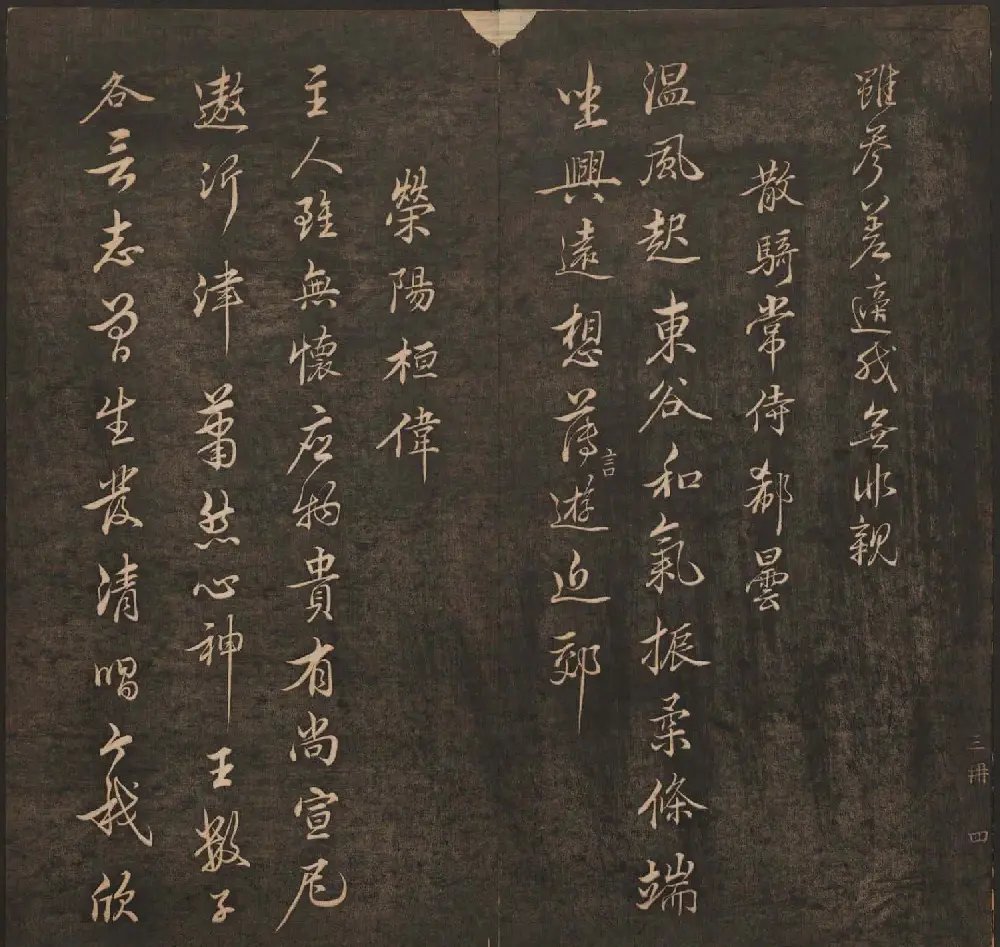 雖參差適我無非親
散騎常侍郗曇
温風起東谷和氣振柔條端
坐興遠想薄言遊近郊
榮陽桓偉
主人雖無懷应物貴有尚宣尼
遨沂津蕭然心神王數子
各言志曾生發清唱今我欣
三冊 四